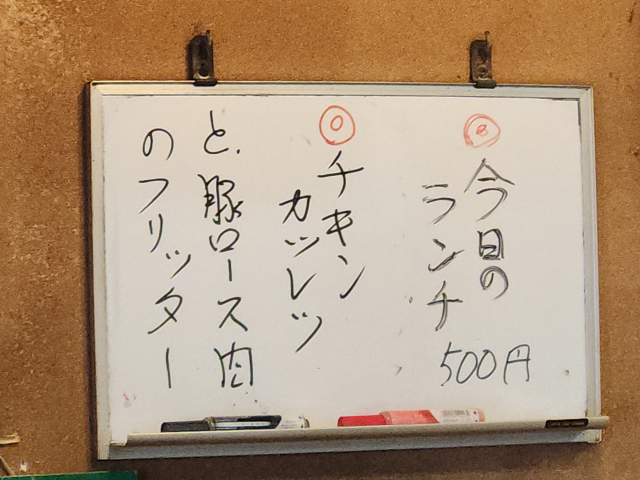 ◎今日の
ランチ
500円
◎チキン
カツレツ
と、豚ロース肉
のフリッター